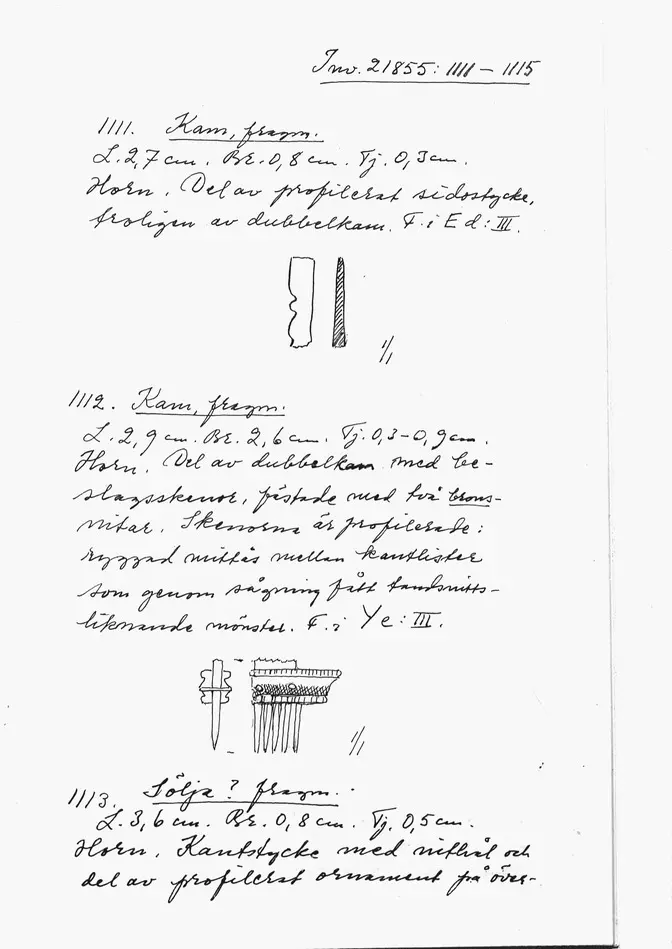 Inv. 21855: 1111 – 1115
1111. Kam, fragm.
L. 2,7 cm. Br. 0,8 cm. Tj. 0,3 cm.
Horn. Del av profilerat sidostycke,
troligen av dubbelkam. F. i Ed: III.
1/1
1112. Kam, fragm.
L. 2,9 cm. Br. 2,6 cm. Tj. 0,3–0,9 cm.
Horn. Del av dubbelkam med be-
slagsskenor, fästade med två brons-
nitar. Skenorna är profilerade:
ryggad mittås mellan kantlister
som genom sågning fått tandsnitts-
liknande mönster. F. i Ye: III.
1/1
1113. Sölja? fragm.
L. 3,6 cm. Br. 0,8 cm. Tj. 0,5 cm.
Horn. Kantstycke med nithål och
del av profilerat ornament på över-